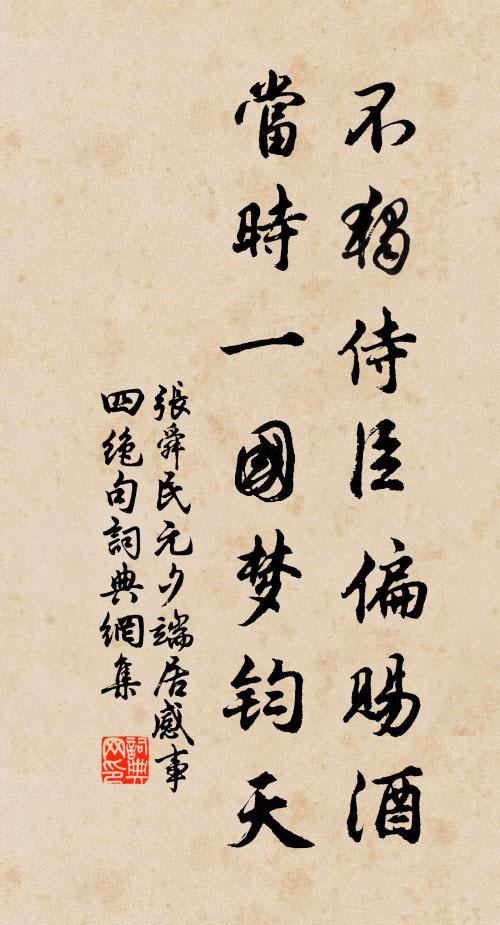 不獨侍臣偏賜酒
當時一國梦鈞天
張舜民元夕端居感事
四絶句詞典網集
詞典
网印